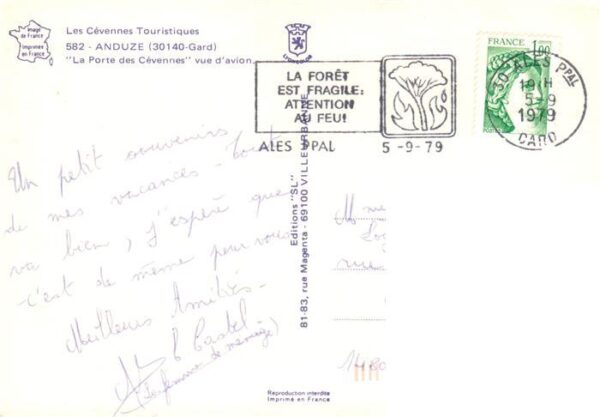 Image de France
Imprimée en France
Les Cévennes Touristiques
582 - ANDUZE (30140-Gard)
"La Porte des Cévennes" vue d'avion
LYONCOLOR
LA FORÊT
EST FRAGILE:
ATTENTION
AU FEU!
ALES PPAL
5 -9-79
FRANCE 1,00
POSTES
30 ALES PPAL
19 H
5-9
1979
GARD
Un petit souvenirs
de mes vacances - tout
va bien, j'espère que
c'est de même pour vous
Meilleurs Amitiés -
Castel
(de menage)
Editions "SL"
81-83, rue Magenta - 69100 VILLEURBANNE
Mme
rue
Reproduction interdite
Imprimé en France